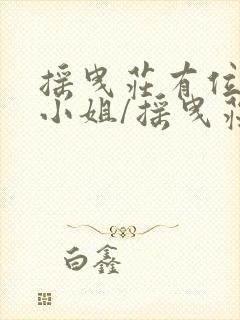 採曳莊有位
小姐/採曳莊
白鑫